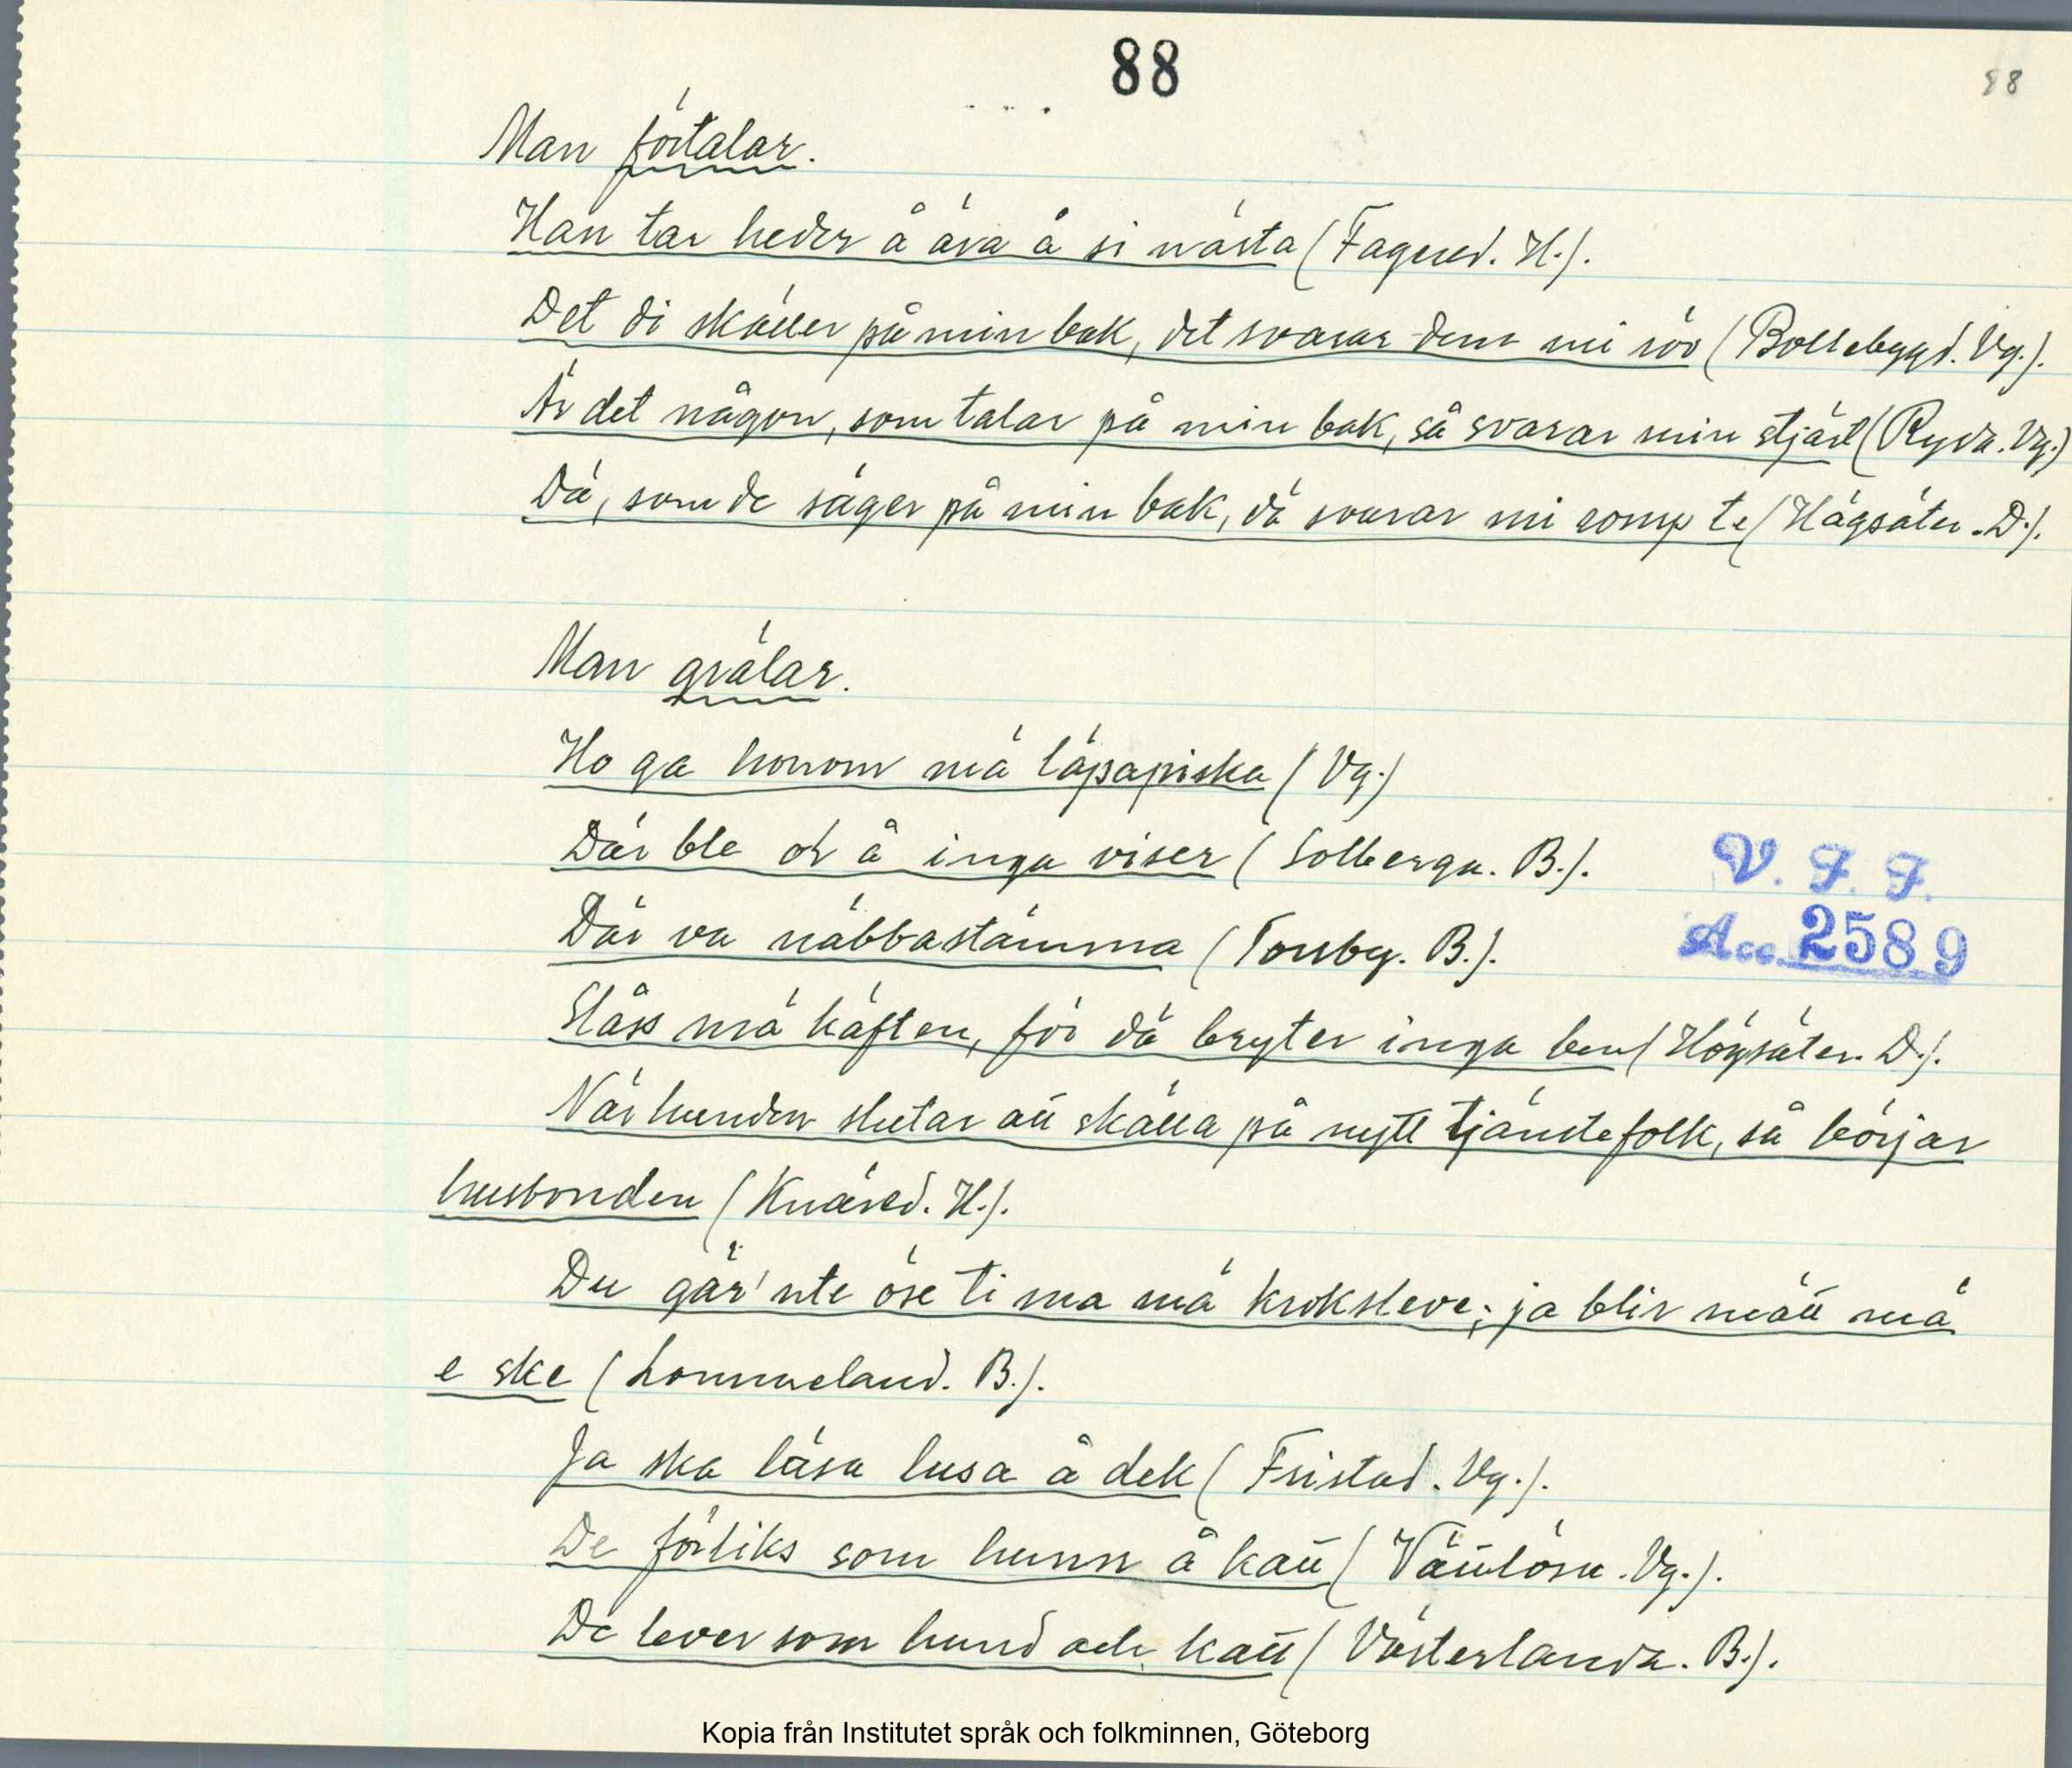 88
88
Man förtalar.
Han tar heder å ära å si nästa (Fagered. H.).
Det di skäller på min bak, det svarar dem mi röv (Bollebygd. Vg.).
Är det någon, som talar på min bak, så svarar min stjärt (Ryda. Vg.)
Dä, som de säger på min bak, dä svarar mi rompa te (Högsäter. D.).
Man grälar.
Ho ga honom mä läpapiska (Vg.)
Där ble å inga viser (Solberga. B.).
Där va näbbastämma (Torsby. B.).
Slåss mä käften, för dä bryter inga ben (Högsäter. D.).
När hunden slutar att skälla på nytt tjänstefolk, så börjar
husbonden (Knäred. H.).
Du gär'nte öse ti ma mä kroksleve; ja blir mätt mä
e ske (Lommeland. B.).
Ja ska läsa lusa å dek (Fristad. Vg.).
De förliks som hunn å katt (Vättlösa. Vg.).
De lever som hund och katt (Västerlanda. B.).
V. F. F.
Acc. 2589
Kopia från Institutet språk och folkminnen, Göteborg